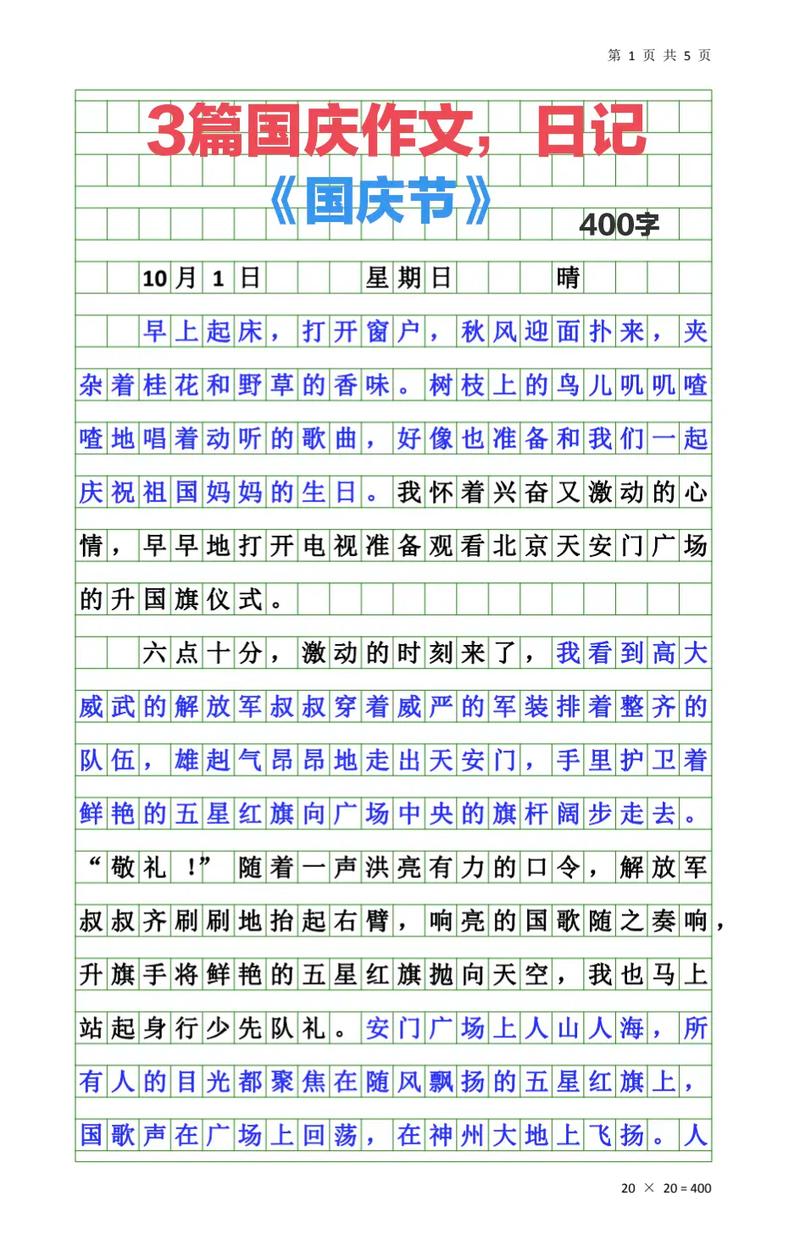 第 1 页 共 5 页
3篇国庆作文，日记
《国庆节》
400字
10月1日 星期日 晴
早上起床，打开窗户，秋风迎面扑来，夹
杂着桂花和野草的香味。树枝上的鸟儿叽叽喳
喳地唱着动听的歌曲，好像也准备和我们一起
庆祝祖国妈妈的生日。我怀着兴奋又激动的心
情，早早地打开电视准备观看北京天安门广场
的升国旗仪式。
六点十分，激动的时刻来了，我看到高大
威武的解放军叔叔穿着威严的军装排着整齐的
队伍，雄赳气昂昂地走出天安门，手里护卫着
鲜艳的五星红旗向广场中央的旗杆阔步走去。
“敬礼！”随着一声洪亮有力的口令，解放军
叔叔齐刷刷地抬起右臂，响亮的国歌随之奏响，
升旗手将鲜艳的五星红旗抛向天空，我也马上
站起身行少先队礼。安门广场上人山人海，所
有人的目光都聚焦在随风飘扬的五星红旗上，
国歌声在广场上回荡，在神州大地上飞扬。人
20 × 20 = 400